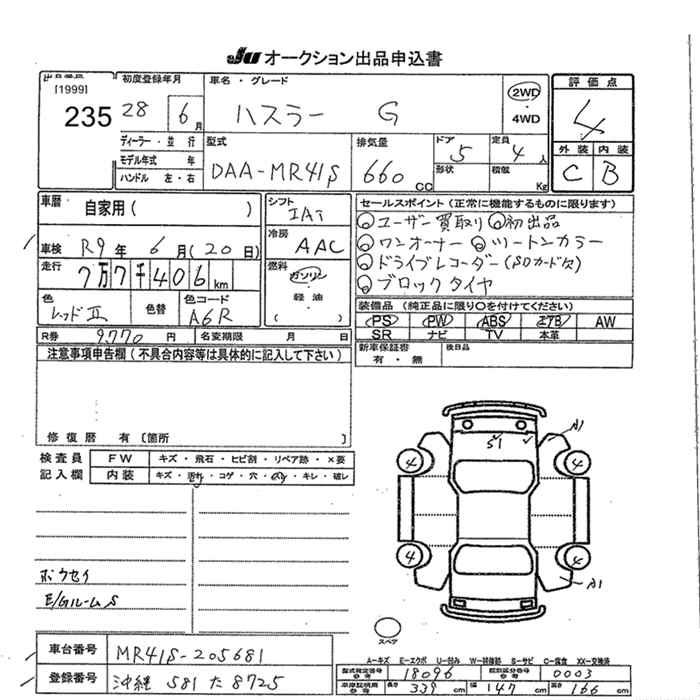 JU オークション出品申込書
[1999]
235
初度登録年月
28 6月
車名・グレード
ハスラー G
2WD
4WD
評価点
4
外装 内装
C B
ディーラー・並行
モデル年式 年
ハンドル 左・右
型式
DAA-MR41S
排気量
660 CC
ドア
5
形状
定員
4人
積載
Kg
車歴
自家用( )
車検 R9年 6月(20日)
走行
7万7千406km
色
レッドⅡ
色替
色コード
A6R
シフト
IAT
冷房
AAC
燃料
ガソリン
軽油
( )
セールスポイント(正常に機能するものに限ります)
ユーザー買取り 初出品
ワンオーナー ツートンカラー
ドライブレコーダー(SDカード欠)
ブロックタイヤ
装備品(純正品に限り○を付けてください)
PS PW ABS エアB AW
SR ナビ TV 本革
新車保証書
有・無
後日品
R券 9,770円
名変期限 月 日
注意事項申告欄(不具合内容等は具体的に記入して下さい)
修復歴 有〔箇所 〕
検査員
記入欄
FW キズ・飛石・ヒビ割・リペア跡・×要
内装 キズ・汚れ・コゲ・穴・・キレ・破レ
ボウセイ
E/GルームS
S1
A1
4 4
4 4
A1
スペア
A-キズ E-エクボ U-凹み W-補修跡 S-サビ C-腐食 XX-交換済
車台番号 MR41S-205681
登録番号 沖縄 581 た 8725
型式指定番号 18096 類別区分番号 0003
車庫証明用参考 長さ 339cm 幅 147cm 高さ 166cm